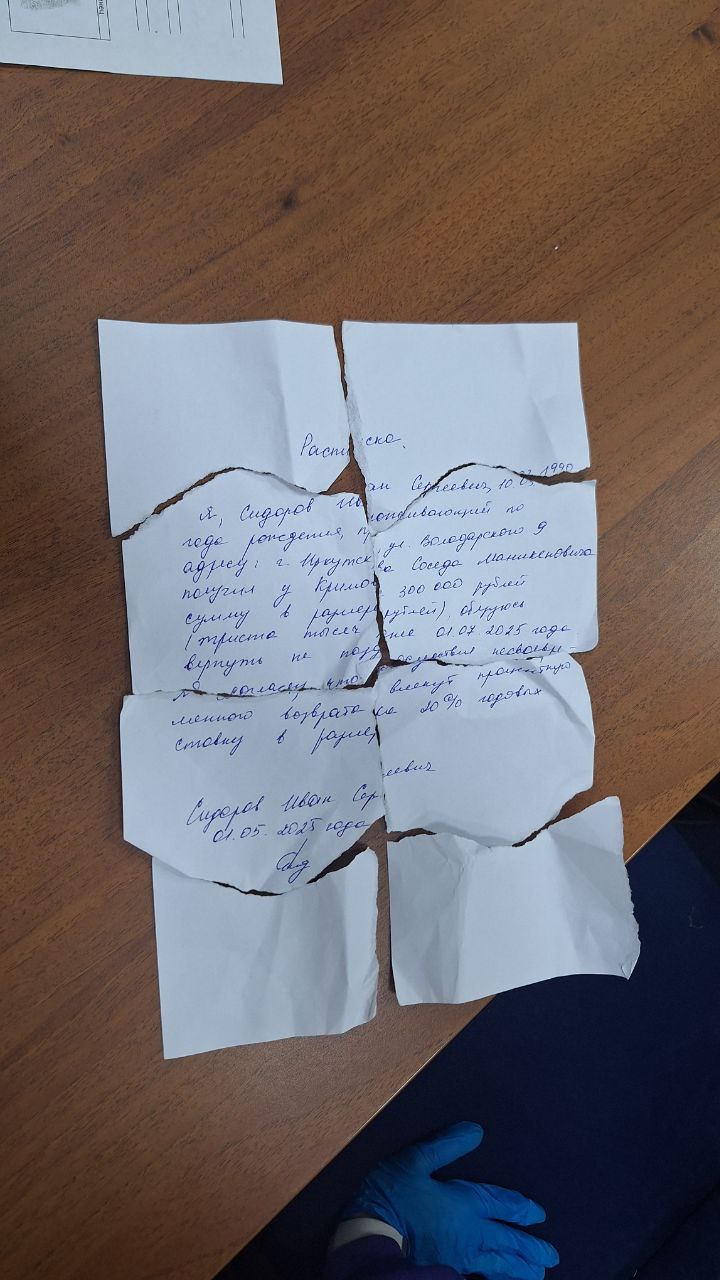 Расписка.
Я, Сидоров Иван Сергеевич, 10.03.1990
года рождения, проживающий по
адресу: г. Иркутск, ул. Володарского 9
получил у Кримова Соседа Маникеновича
сумму в размере 300 000 рублей
(триста тысяч рублей), обязуюсь
вернуть не позднее 01.07.2025 года
Я согласен, что осуществил несвоевре-
менного возврата влекут процентную
ставку в размере 20% годовых
Сидоров Иван Сергеевич
01.05.2025 года
Сид